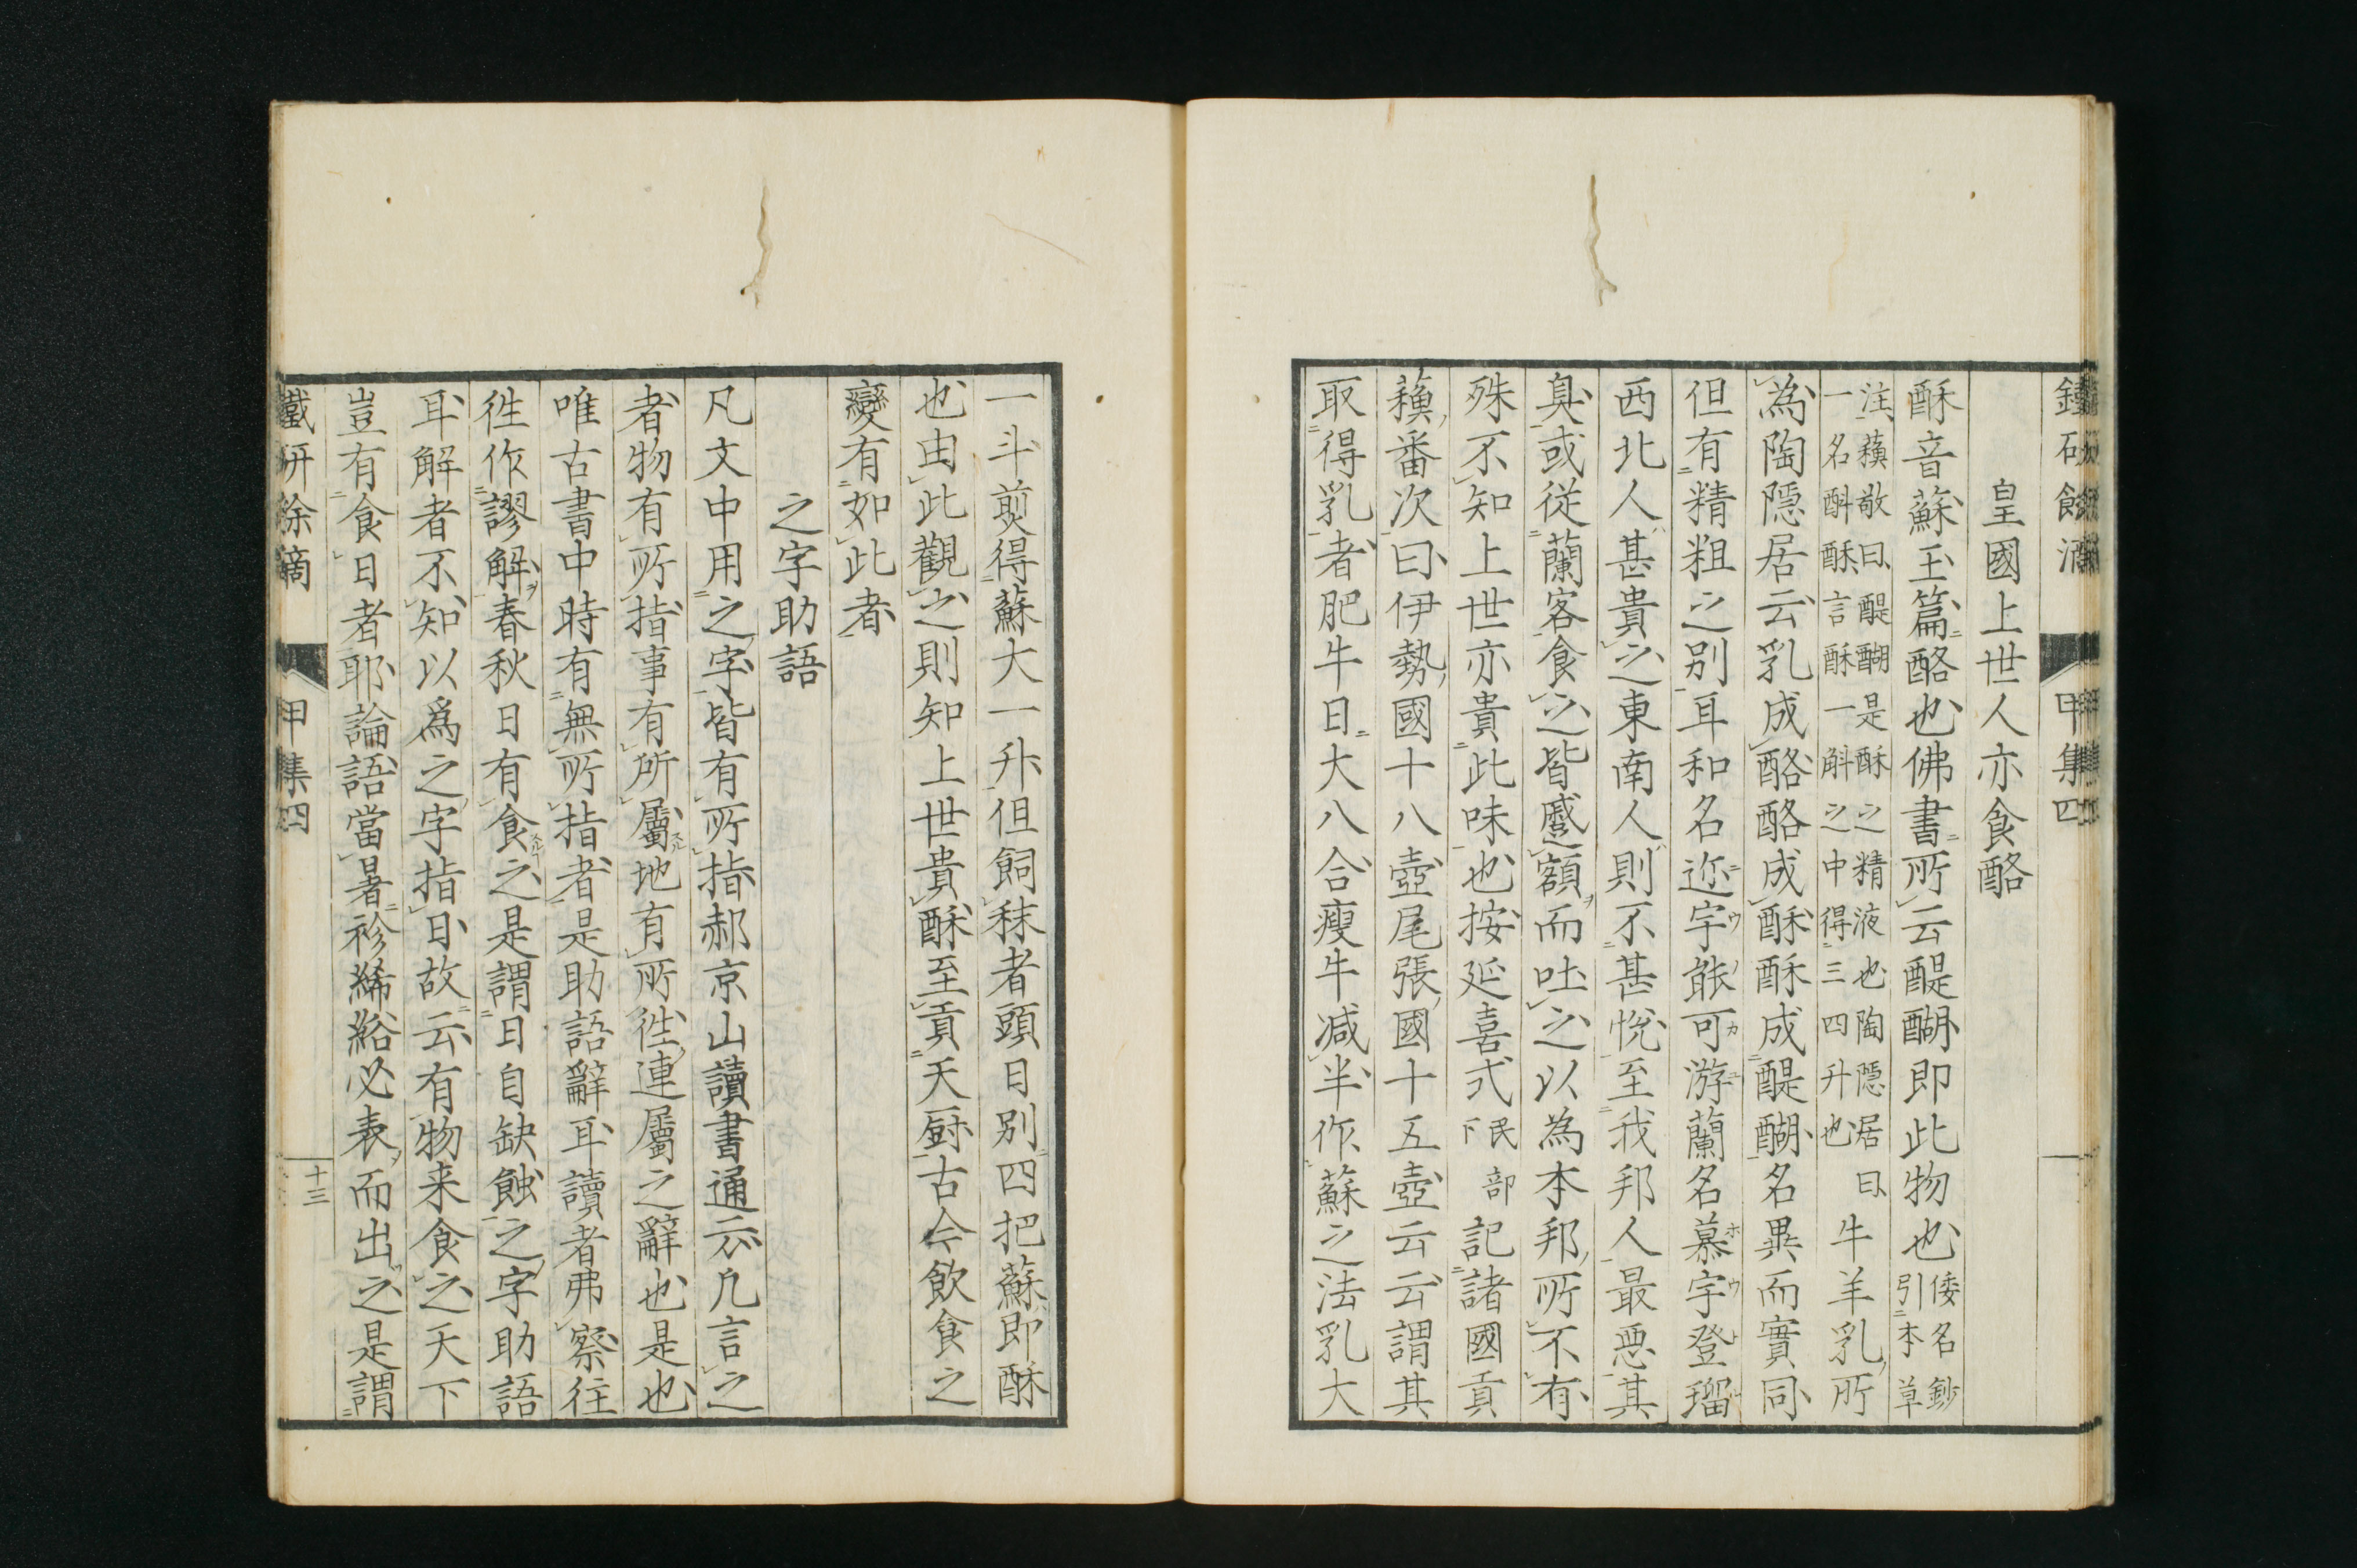 皇國上世人亦食酪
酥音蘇玉篇酪也佛書所云醍醐即此物也倭名鈔引本草
注蘓敬曰醍醐是酥之精液也陶隠居曰牛羊乳所
一名酙酥言酥一斛之中得三四升也
為陶隠居云乳成酪酪成酥酥成醍醐名異而實同
但有精粗之別耳和名迩宇能可游蘭名慕宇登瑠
西北人甚貴之東南人則不甚恱至我邦人最悪其
臭或従蘭客食之皆蹙額而吐之以為本邦所不有
殊不知上世亦貴此味也按延喜式民部下記諸國貢
蘓番次曰伊勢國十八壺尾張國十五壺云云謂其
取得乳者肥牛日大八合瘦牛減半作蘇之法乳大
一斗煎得蘇大一升但飼秣者頭日別四把蘇即酥
也由此觀之則知上世貴酥至貢天厨古今飲食之
變有如此者
之字助語
凡文中用之字皆有所指郝京山讀書通云凡言之
者物有所指事有所屬地有所徃連屬之辭也是也
唯古書中時有無所指者是助語辭耳讀者弗察往
徃作謬解春秋日有食之是謂日自缺蝕之字助語
耳解者不知以爲之字指日故云有物来食之天下
豈有食日者耶論語當暑袗絺綌必表而出之是謂
甲集四
十三